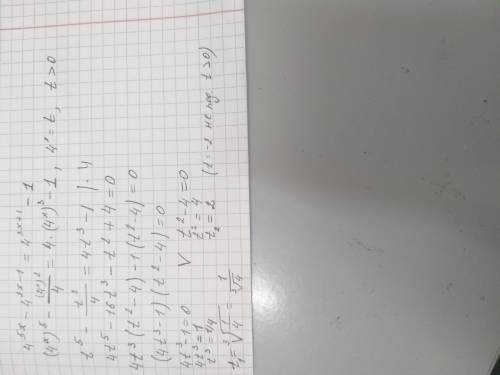 4^{5x} - 4^{2x-1} = 4^{3x+1} - 1
(4^x)^5 - \frac{(4^x)^2}{4} = 4·(4^x)^3 - 1, 4^x = t, t > 0
t^5 - \frac{t^2}{4} = 4t^3 - 1 | · 4
4t^5 - 16t^3 - t^2 + 4 = 0
4t^3(t^2-4) - 1(t^2-4) = 0
(4t^3-1)(t^2-4) = 0
4t^3-1=0 V t^2-4=0
4t^3=1 t^2=4
t^3=1/4 t_2=2 (t=-2 не под. t>0)
t_1=\sqrt[3]{\frac{1}{4}} = \frac{1}{\sqrt[3]{4}}